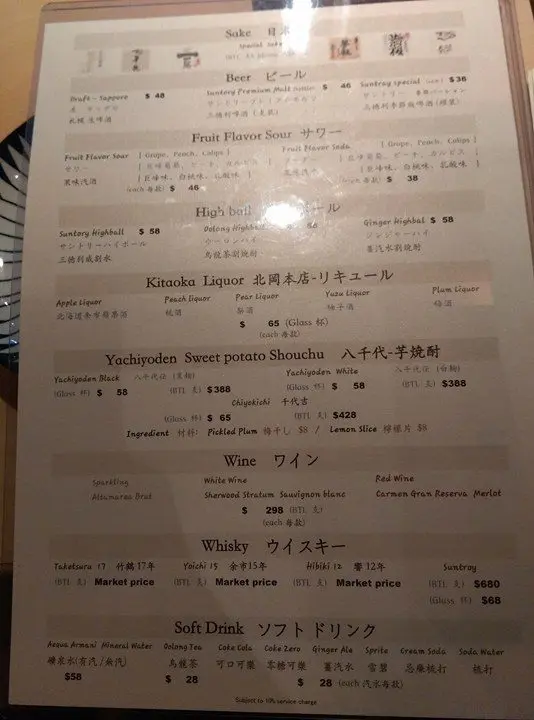 Sake 日本
Special Sake
Beer ビール
Draft - Sapporo $ 48
札幌 生啤酒
Suntory Premium Malt $ 46
サントリープレミアムモルツ
三德利啤酒
Suntroy special $ 36
三德利季節版啤酒
Fruit Flavor Sour サワー
Fruit Flavor Sour [ Grape, Peach, Calips ]
サワー [ 巨峰葡萄、ピーチ、カルピス ]
果味汽酒 [ 巨峰味、白桃味、乳酸味 ]
(each 每款) $ 46
Fruit Flavor Soda [ Grape, Peach, Calips ]
[ 巨峰葡萄、ピーチ、カルピス ]
[ 巨峰味、白桃味、乳酸味 ]
(each 每款) $ 38
High ball ハイボール
Suntory Highball $ 58
サントリーハイボール
三德利威割水
Oolong Highball
ウーロンハイ
烏龍茶割燒酎
Ginger Highbal $ 58
ジンジャーハイ
薑汽水割燒酎
Kitaoka Liquor 北岡本店-リキュール
Apple Liquor Peach liquor Pear Liquor Yuzu Liquor Plum Liquor
北海道余市蘋果酒 桃酒 梨酒 柚子酒 梅酒
$ 65 (Glass 杯)
(each 每款)
Yachiyoden Sweet potato Shouchu 八千代-芋焼酎
Yachiyoden Black 八千代伝 (黒麹)
(Glass 杯) $ 58 (BTL 支) $388
Yachiyoden White 八千代伝 (白麹)
(Glass 杯) $ 58 (BTL 支) $388
Chiyokichi 千代吉
(Glass 杯) $ 65 (BTL 支) $428
Ingredient 材料: Pickled Plum 梅干し $8 / Lemon Slice 檸檬片 $8
Wine ワイン
Sparkling White Wine Red Wine
Altamarea Brut Sherwood Stratum Sauvignon blanc Carmen Gran Reserva Merlot
$ 298 (BTL 支)
(each 每款)
Whisky ウイスキー
Taketsuru 17 竹鶴17年 Yoichi 15 余市15年 Hibiki 12 響 12年 Suntroy
(BTL 支) Market price (BTL 支) Market price (BTL 支) Market price (BTL 支) $680
(Glass 杯) $68
Soft Drink ソフトドリンク
Acqua Armani Mineral Water Oolong Tea Coke Cola Coke Zero Ginger Ale Sprite Cream Soda Soda Water
礦泉水(有汽 / 無汽) 烏龍茶 可口可樂 零糖可樂 薑汽水 雪碧 忌廉梳打 梳打
$58 $ 28 $ 28 (each 汽水每款)
Subject to 10% service charge